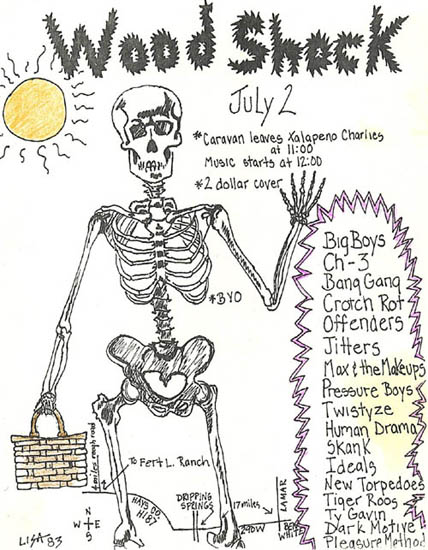 Wood Shock
July 2
*Caravan leaves Xalapeno Charlies
at 11:00
Music starts at 12:00
*2 dollar cover
*BYO
Big Boys
Ch-3
Bang Gang
Crotch Rot
Offenders
Jitters
Max & the Makeups
Pressure Boys
Twistyze
Human Drama
Skank
Ideals
New Torpedoes
Tiger Roos
Ty Gavin
Dark Motive
Pleasure Method
4 miles rough road
To Fert L. Ranch
HAYS CO.
N187
DRIPPING
SPRINGS
17 miles
290W
LAMAR
BEN
WHITE
N
W E
S
LISA 83